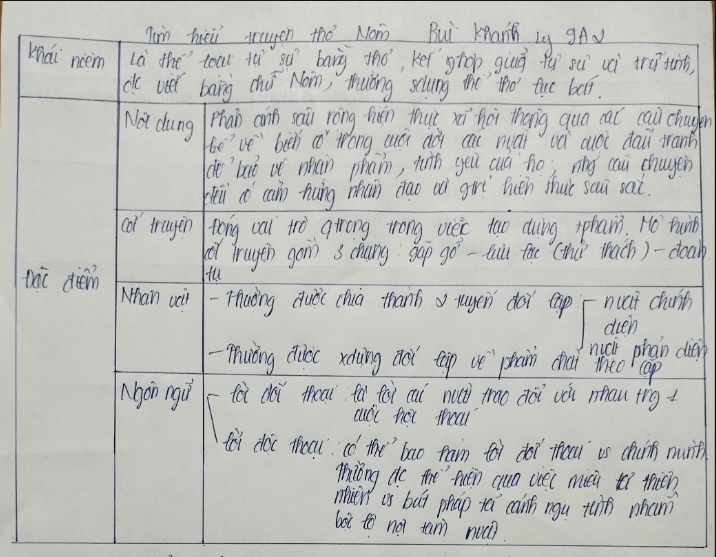 Tìm hiểu truyện thơ Nôm Bùi Khánh Ly 9A2
Khái niệm
Là thể loại tự sự bằng thơ, kết ghợp giữa tự sự và trữ tình,
đc viết bằng chữ Nôm, thường sdụng thể thơ lục bát.
Đặc điểm
Nội dung
Phản ánh sâu rộng hiện thực xã hội thông qua các câu chuyện
kể về biến cố trong cuộc đời các nvật và cuộc đấu tranh
để bảo vệ nhân phẩm, tình yêu của họ; nhg câu chuyện
đều có cảm hứng nhân đạo và gtrị hiện thực sâu sắc.
Cốt truyện
Đóng vai trò qtrọng trong việc tạo dựng tphẩm. Mô hình
cốt truyện gồm 3 chặng: gặp gỡ - lưu lạc (thử thách) - đoàn
tụ
Nhân vật
- Thường được chia thành 2 tuyến đối lập nvật chính
diện
nvật phản diện
- Thường được xdựng đối lập về phẩm chất theo cặp
Ngôn ngữ
- lời đối thoại: là lời các nvật trao đổi với nhau trg 1
cuộc hội thoại
lời độc thoại: có thể bao hàm lời đối thoại vs chính mình.
Thường đc thể hiện qua việc miêu tả thiên
nhiên vs bút pháp tả cảnh ngụ tình nhằm
bộc lộ nội tâm nvật.